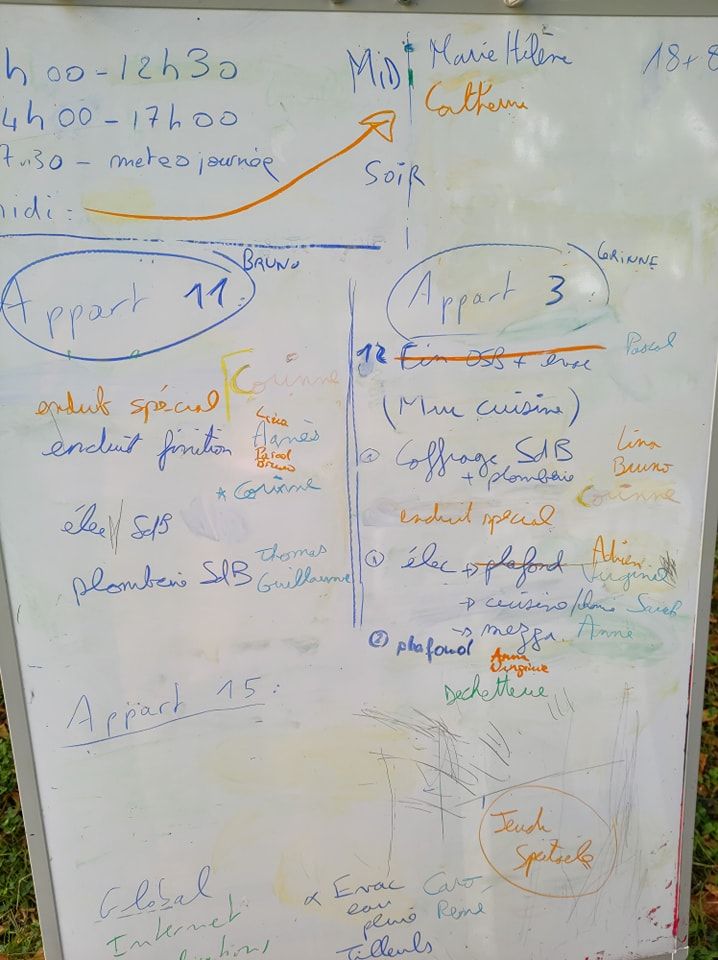 h 00 - 12h30
4h 00 - 17h00
7h30 - meteo journée
midi :
MiDi
Marie Hélène
Catherine
18 + 8
SOiR
BRUNO
Appart 11 :
Corinne
enduit spécial
enduit finition
Lina
Agnès
Pascal
Bruno
* Corinne
élec SdB
plomberie SdB
Thomas
Guillaume
CORINNE
Appart 3 :
12 Fin OSB + evac
Pascal
(Mur cuisine)
① Coffrage SdB
+ plomberie
Lina
Bruno
Corinne
enduit special
① élec → plafond
Adrien
Virginie
→ cuisine/
Sarah
→ mezza.
Anne
② plafond
Anne
Virginie
Dechetterie
Appart 15 :
Jeudi
Spectacle
Global
Internet
Evac
eau
pluie
Caro
Remé
Tilleuls